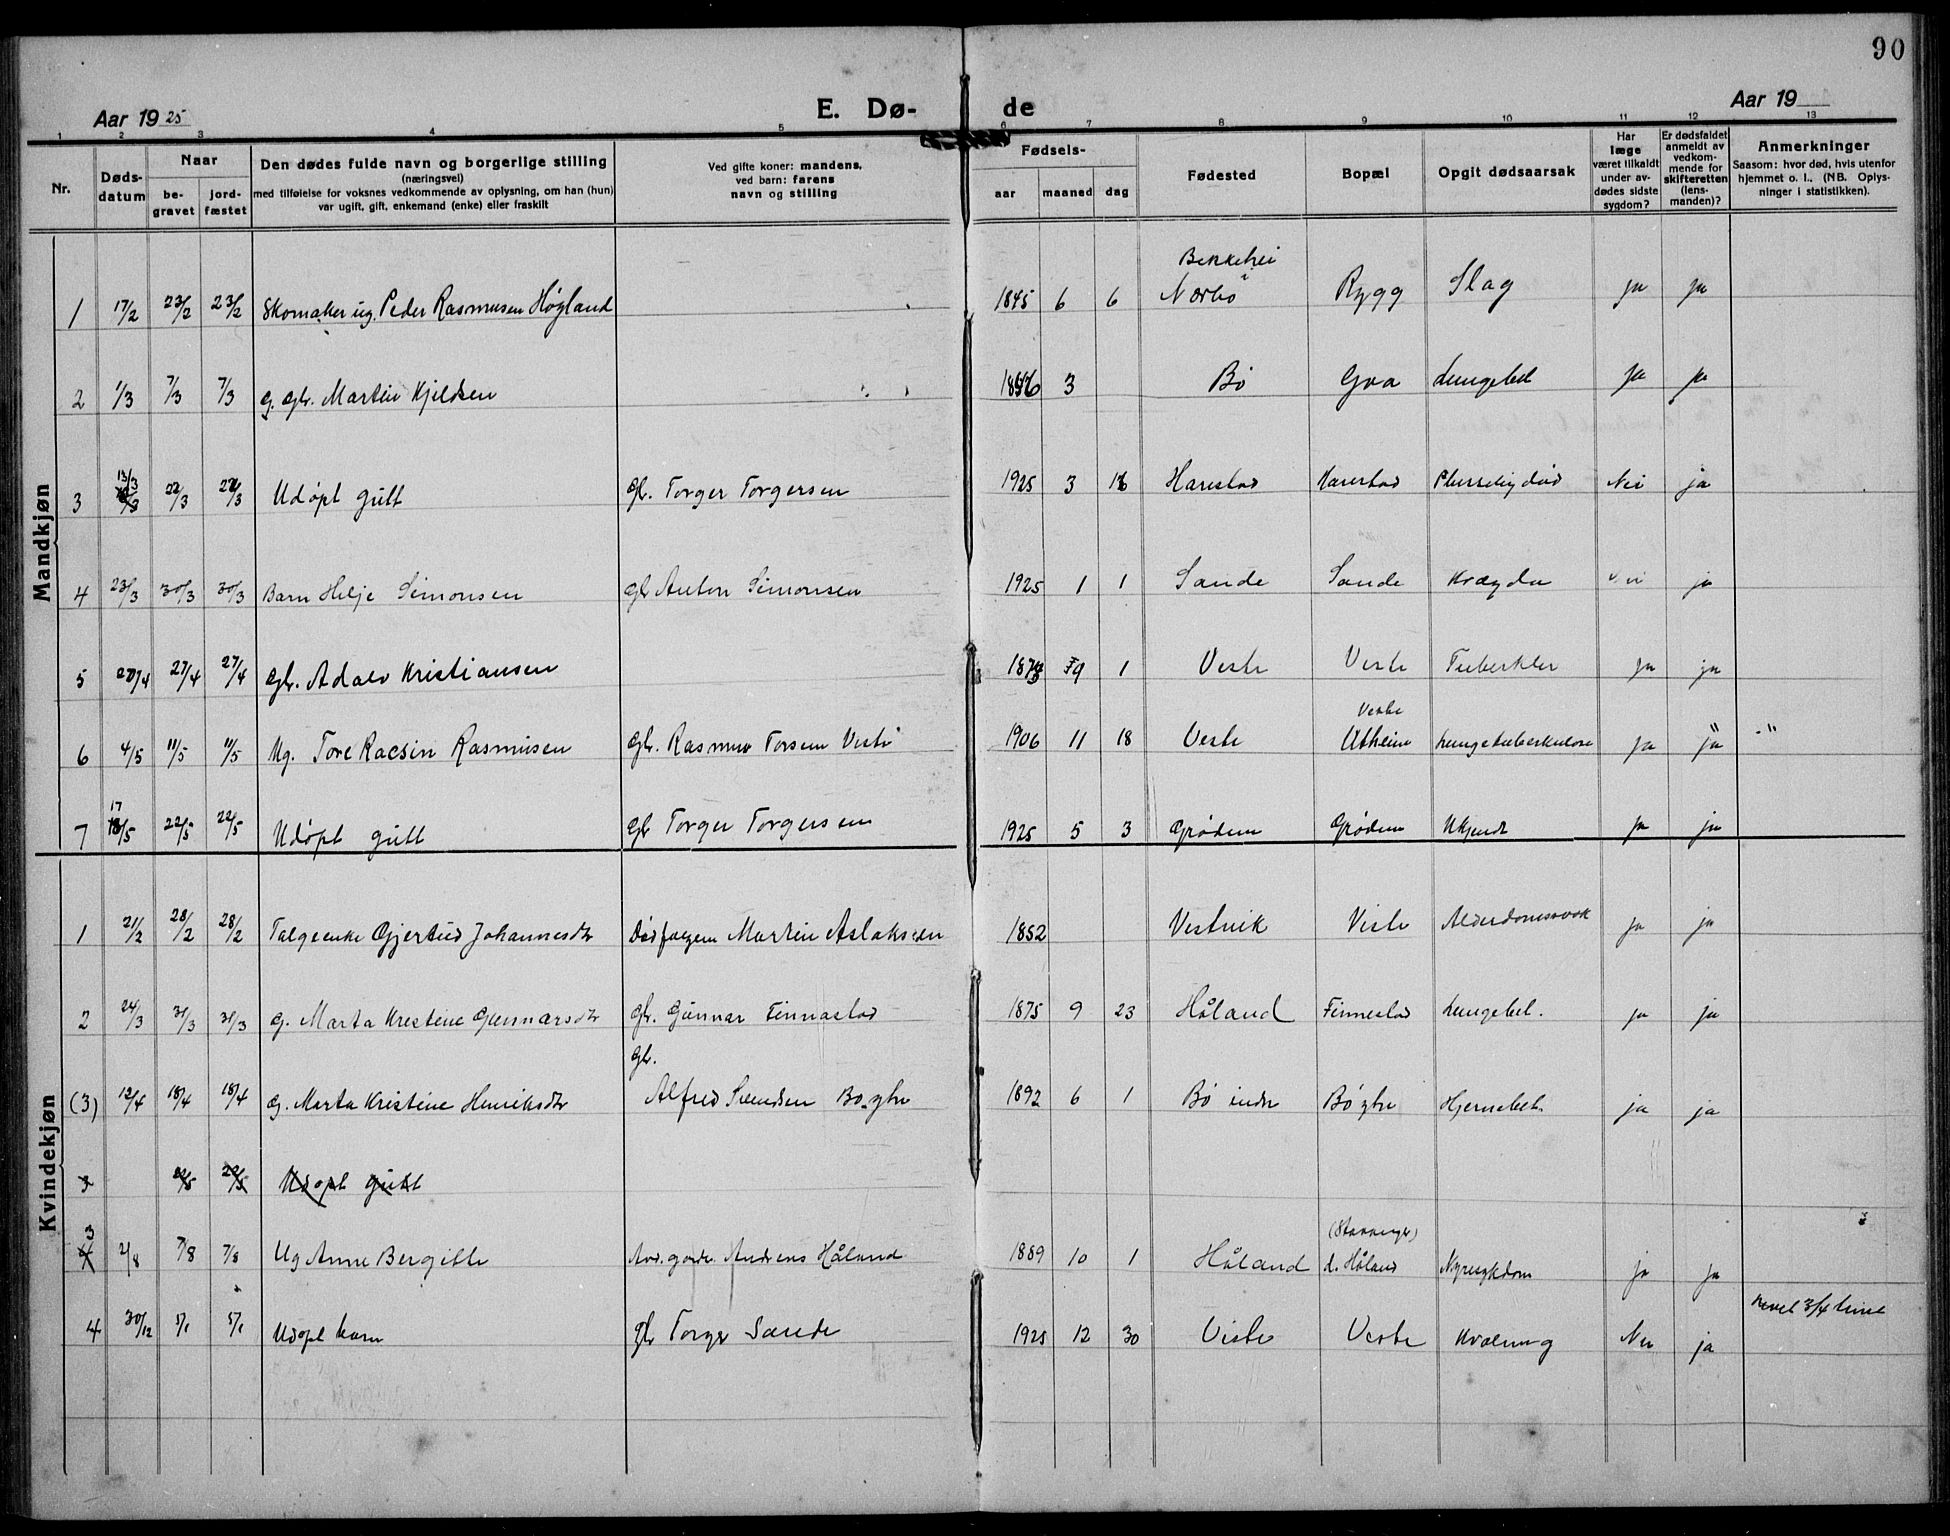 90
Aar 1925
E. Dø-
de
Aar 19
1 2 3 4 5 6 7 8 9 10 11 12 13
Nr.
Døds-
datum
Naar
be-
gravet
jord-
fæstet
Den dødes fulde navn og borgerlige stilling
(næringsvei)
med tilføielse for voksnes vedkommende av oplysning, om han (hun)
var ugift, gift, enkemand (enke) eller fraskilt
Ved gifte koner: mandens,
ved barn: farens
navn og stilling
Fødsels-
aar
maaned
dag
Fødested
Bopæl
Opgit dødsaarsak
Har
læge
været tilkaldt
under av-
dødes sidste
sygdom?
Er dødsfaldet
anmeldt av
vedkom-
mende for
skifteretten
(lens-
manden)?
Anmerkninger
Saasom: hvor død, hvis utenfor
hjemmet o. l., (NB. Oplys-
ninger i statistikken).
Mandkjøn
Bekkehei
1 17/2 23/2 23/2 Skomaker ug. Peder Rasmusen Høgland 1845 6 6 i Nærbø Rygg Slag ja ja
2 1/3 7/3 7/3 g. gbr. Martin Kjeldsen 3 Bø Goa Lungebet ja ja
3 13/3 22/3 22/3 Udøpt gutt gbr. Torger Torgersen 1925 3 Harestad Harestad Nei ja
4 23/3 30/3 30/3 Barn Helje Simonsen gbr Anton Simonsen 1925 1 1 Sande Sande Nei ja
5 20/4 27/4 27/4 gbr. Adolv Kristiansen 9 1 Viste Viste Tuberkler ja ja
Viste
6 4/5 11/5 11/5 Ug. Tore Racsin Rasmusen gbr. Rasmus Torsen Viste 1906 11 18 Viste Utheim Lungetuberkulose ja ja "
7 17/5 22/5 22/5 Udøpt gutt gbr Torger Torgersen 1925 5 3 Grødem Grødem Ukjendt ja ja
Kvindekjøn
1 21/2 28/2 28/2 Gjertrud Johannesdtr Martin Aslaksen 1852 Vestvik Viste Alderdomssvak ja ja
2 24/3 31/3 31/3 g. Marta Kristine Gunnarsdtr gbr. Gunnar Finnestad 1875 9 23 Håland Finnestad Lungebet. ja ja
gbr.
(3) 12/4 18/4 18/4 g. Marta Kristine Henriksdtr Alfred Svendsen Bø ytre 1892 6 1 Bø indre Bø ytre Hjernebet. ja ja
3 22/5 22/5 Udøpt gutt
(Stavanger)
3 2/8 7/8 7/8 Ug Anne Bergitte Andreas Håland 1889 10 1 Håland d. Håland Nyresykdom ja ja
levet 3/4 time
4 30/12 5/1 5/1 Udøpt barn gbr Torger Sande 1925 12 30 Viste Viste Kvælning Nei ja